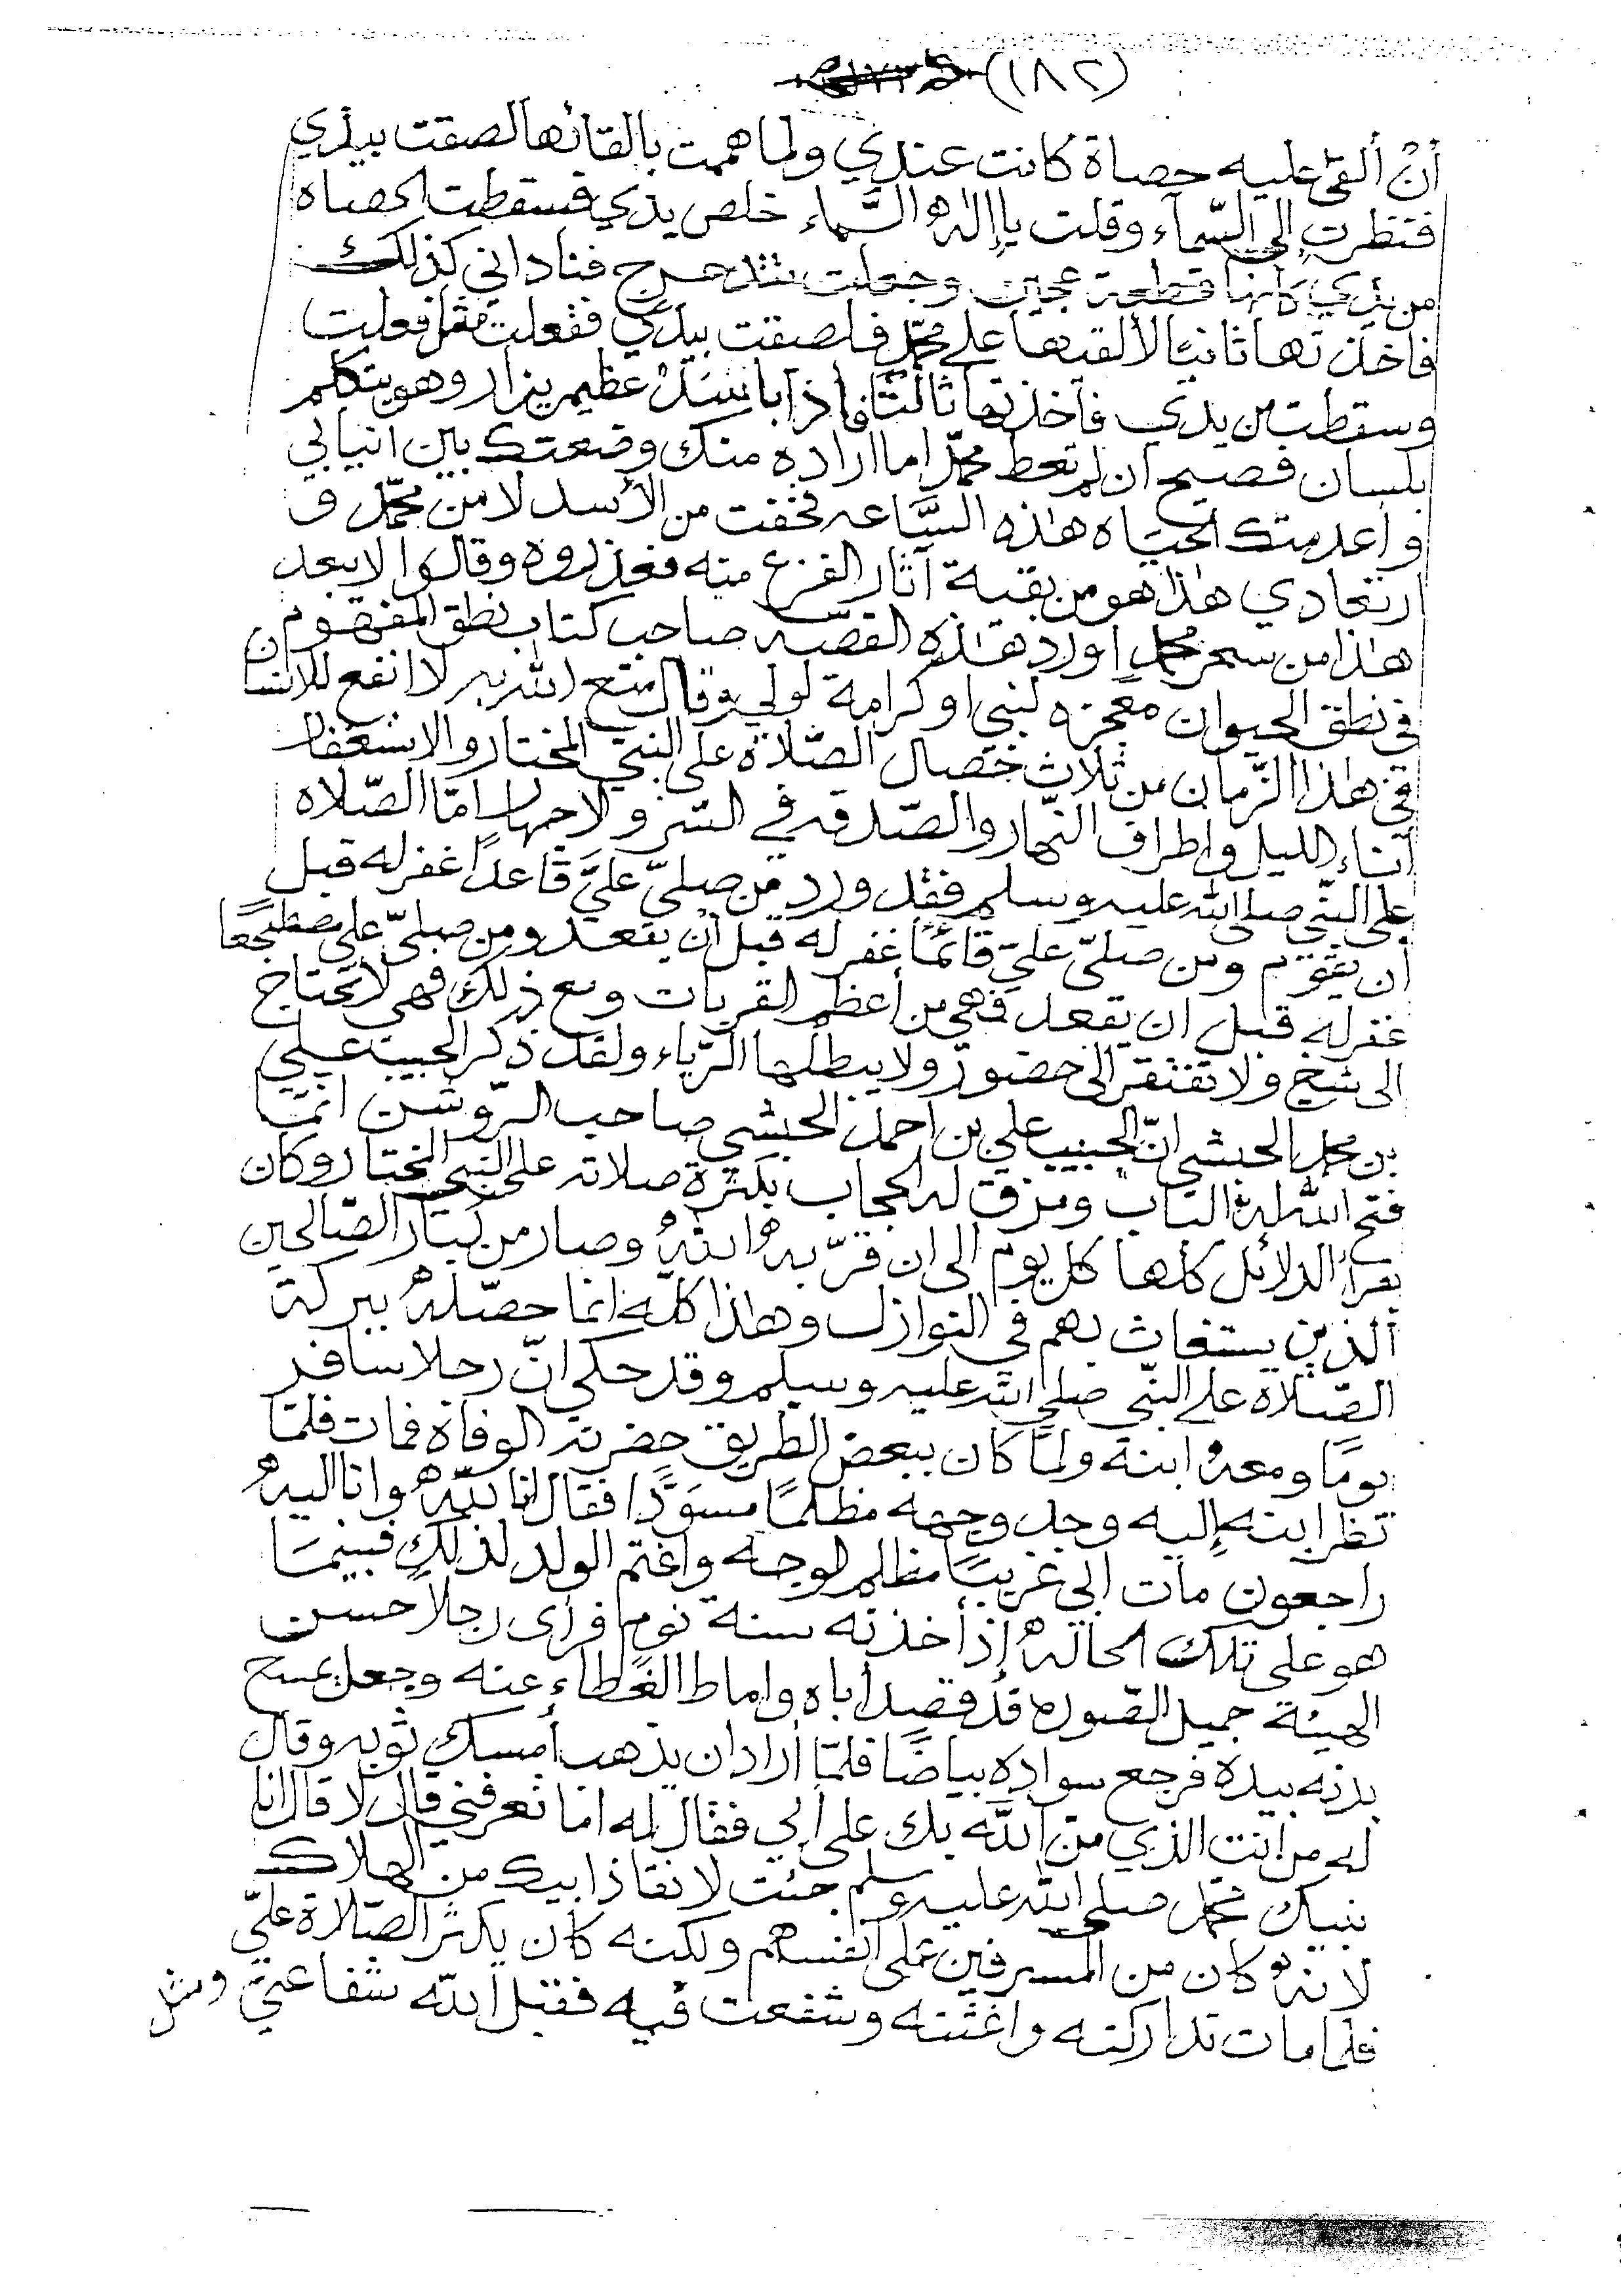 (١٨٢)
أنْ ألقى عليه حصاة كانت عندي ولما هممت بالقائها لصقت بيدي
فنظرت إلى السّمآء وقلت يا إلٰه السَّماء خلص يدي فسقطت الحصاه
من يدي كأنها قطعة عجين وجعلت حرج فناداني كذلك
فاخذتها ثانيًا لألقيها على محمّد فلصقت بيدي ففعلت مثل ما فعلت
وسقطت من يدي فآخذتها ثالثًا فاذا باسد عظيم يزار وهو يتكلم
بلسان فصيح ان لم تعط محمّدًا ما اراده منك وضعتك بين انيابي
واعدمتك الحيَاه هٰذه السَّاعه فخفت من الأسد لا من محمّد و
ارتعادي هٰذا هو من بقية آثار الفزع منه فعذروه وقالوا لا يبعد
هٰذا من سحر محمد اورد هٰذه القصّه صاحب كتاب نطق المفهوم
في نطق الحيوان معجزه لنبي او كرامة لولي وقال متع الله به لا انفع للانسان
في هٰذا الزّمان من ثلاث خصال الصّلاة على النبي المختار والاستغفار
آناء الليل واطراف النّهار والصّدقه في السّر والاجهار امّا الصّلاه
على النّبي صلى الله عليه وسلم فقد ورد من صلىّ عليَّ قاعدًا غفر له قبل
أن يقوم ومن صلىّ عليّ قائمًا غفر له قبل أنْ يقعد ومن صلىّ علي مضطجعًا
غفر له قبل ان يقعد فهي من أعظم القربات ومع ذلك فهي لا تحتاج
الى شيخ ولا تفتقر الى حضور ولا يبطلها الرّياء ولقد ذكر الحبيب علي
بن محمد الحبشي انّ الحبيب علي بن احمد الحبشي صاحب الرّوشن انمّا
فتح الله له الباب ومزق له الحجاب بكثرة صلاته على النبي المختار وكان
يقرأ الدلائل كلها كل يوم الى ان قرّبه الله وصار من كبار الصّالحين
الذين يستغاث بهم في النوازل وهٰذا كلّه انما حصّله ببركة
الصّلاه على النّبي صلى الله عليه وسلم وقد حكي انّ رجلا سافر
يومًا ومعهُ ابنه ولمّا كان ببعض الطريق حضرته الوفاة فمات فلمّا
نظر ابنه إليه وجد وجهه مظلمًا مسوَدًّا فقال انا للّه وانا اليه
راجعون مات ابي غريبًا مظلم الوجه واغتم الولد لذلك فبينمَا
هو على تلك الحاله إذ أخذته سنة نوم فرأى رجلاً حسن
الهيئة جميل الصّوره قد قصد أباه واماط الغطاء عنه وجعل يمسح
بدنه بيده فرجع سواده بياضًا فلمّا أراد ان يذهب أمسك ثوبه وقال
له من انت الذي من اللّه بك على أبي فقال له اما تعرفني قال لا قال انا
نبيك محمد صلى الله عليه وسلم جئت لانقاذ ابيك من الهلاك
لانه كان من المسرفين على انفسهم ولكنه كان يكثر الصّلاة عليّ
فلما مات تداركته واغثته وشفعت فيه فقبل الله شفاعتي ومثل